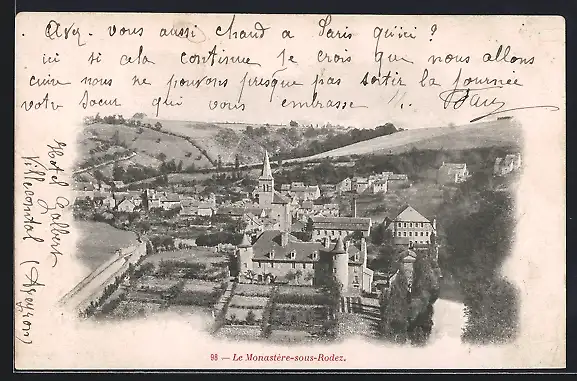 Avez-vous aussi chaud a Paris qu'ici ?
ici si cela continue je crois que nous allons
cuire nous ne pouvons presque pas sortir la journée
votre Sœur qui vous embrasse
Hotel Galbert
Villecomtal
(Aveyron)
98 — Le Monastère-sous-Rodez.